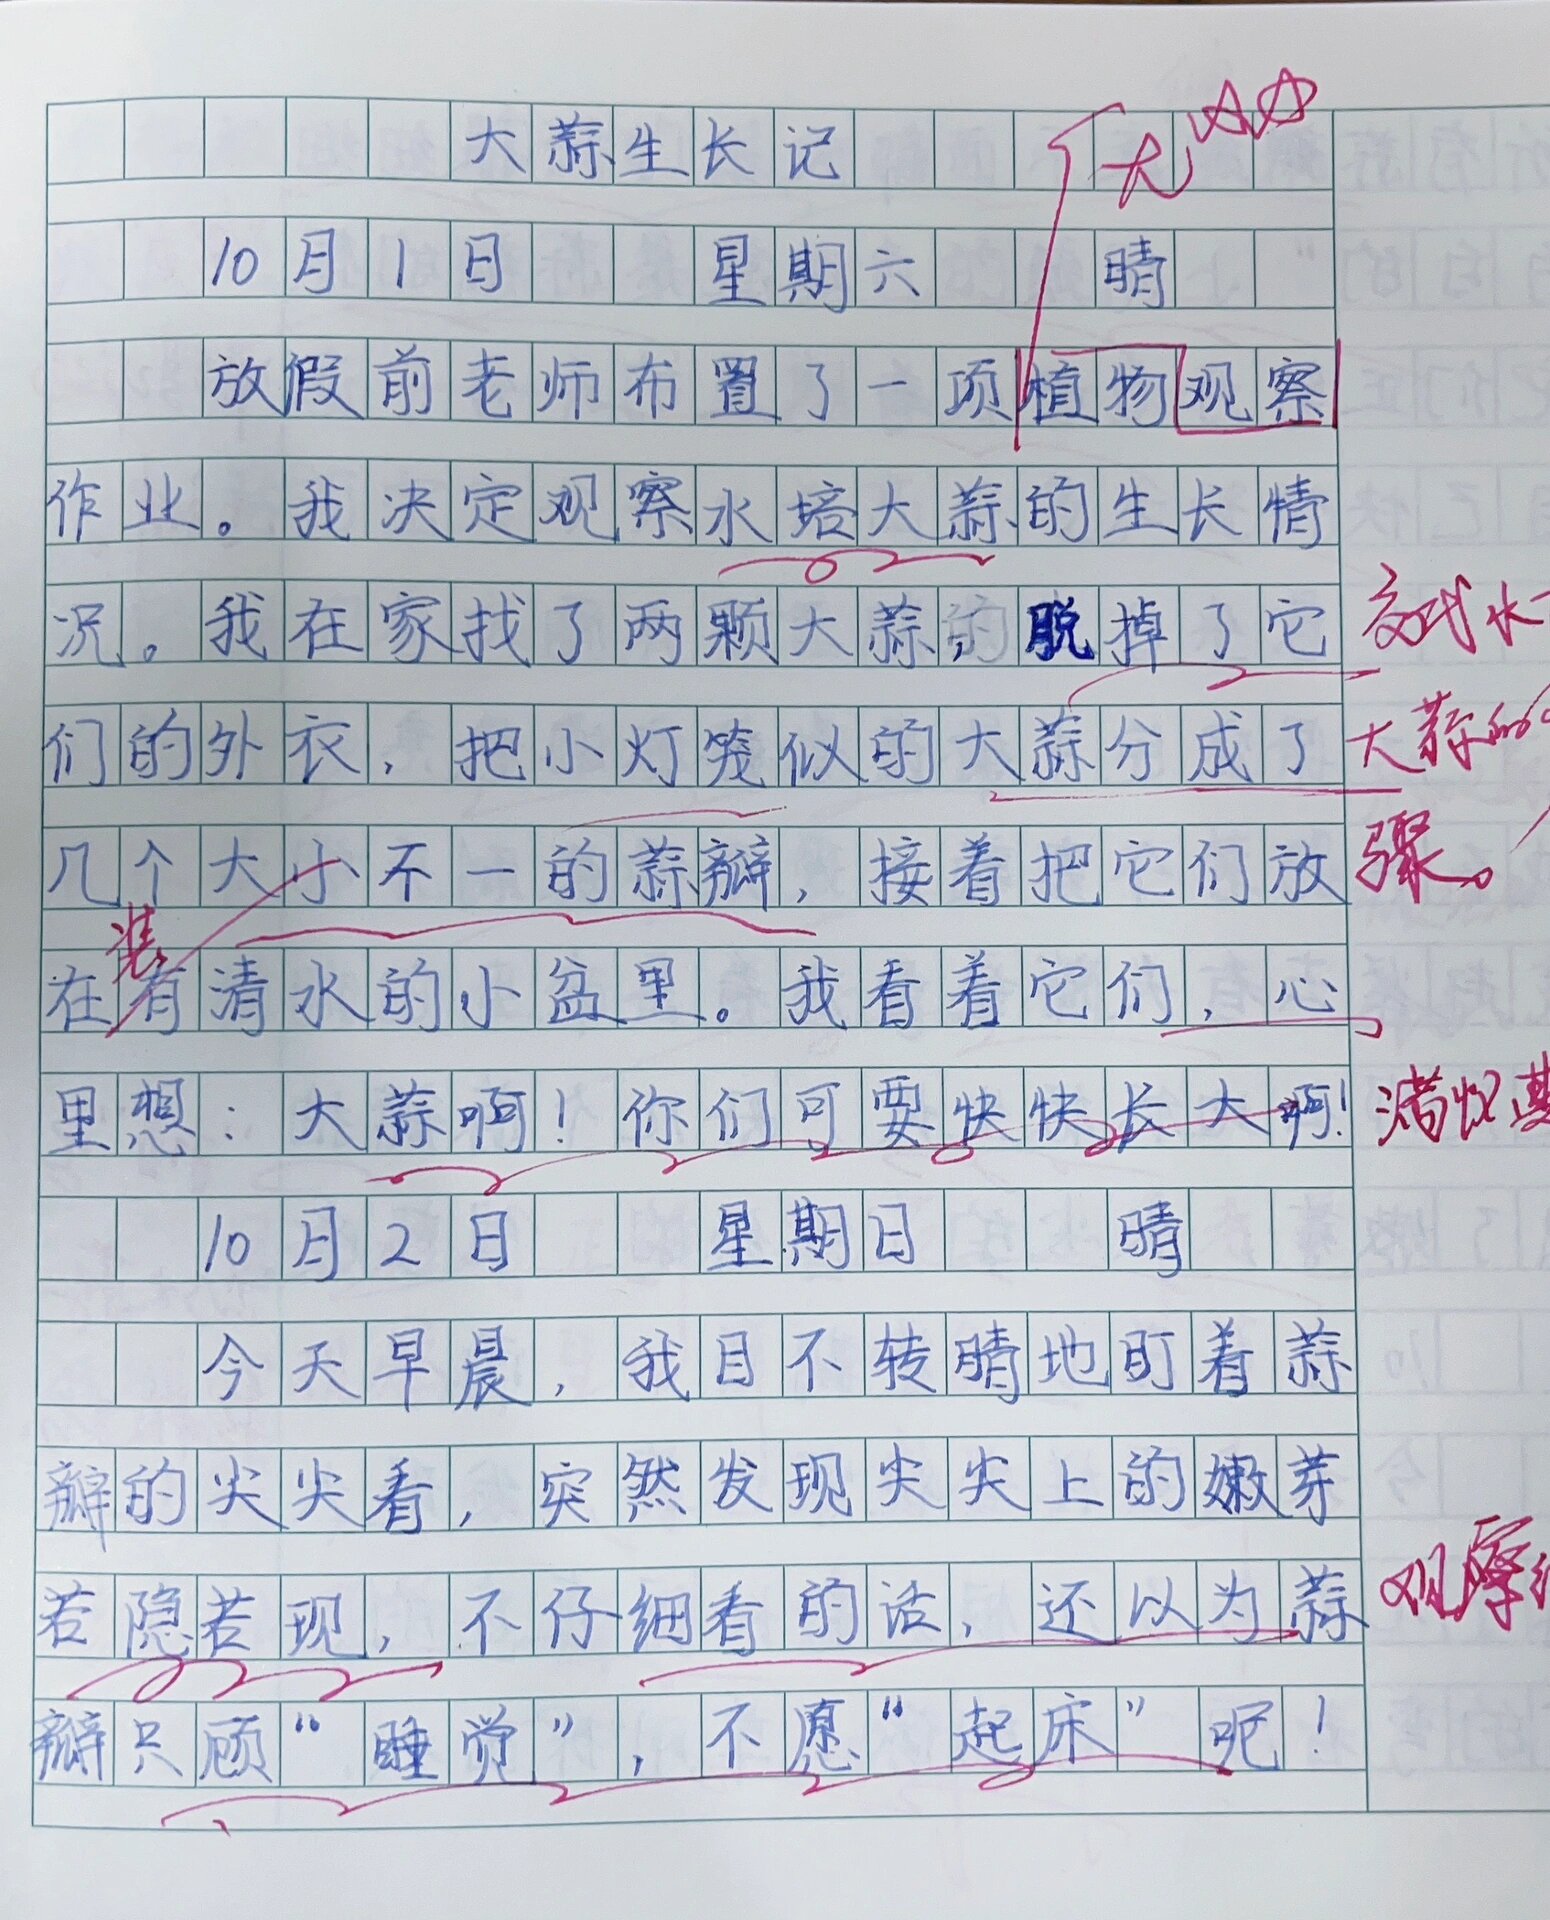 大蒜生长记
优
10月1日 星期六 晴
放假前老师布置了一项植物观察
作业。我决定观察水培大蒜的生长情
况。我在家找了两颗大蒜,脱掉了它
交代水
们的外衣,把小灯笼似的大蒜分成了
大蒜的
几个大小不一的蒜瓣,接着把它们放
骤。
装
在有清水的小盆里。我看着它们,心
里想:大蒜啊!你们可要快快长大啊!
满怀
10月2日 星期日 晴
今天早晨,我目不转睛地盯着蒜
瓣的尖尖看,突然发现尖尖上的嫩芽
若隐若现,不仔细看的话,还以为蒜
观察
瓣只顾“睡觉”,不愿“起床”呢!